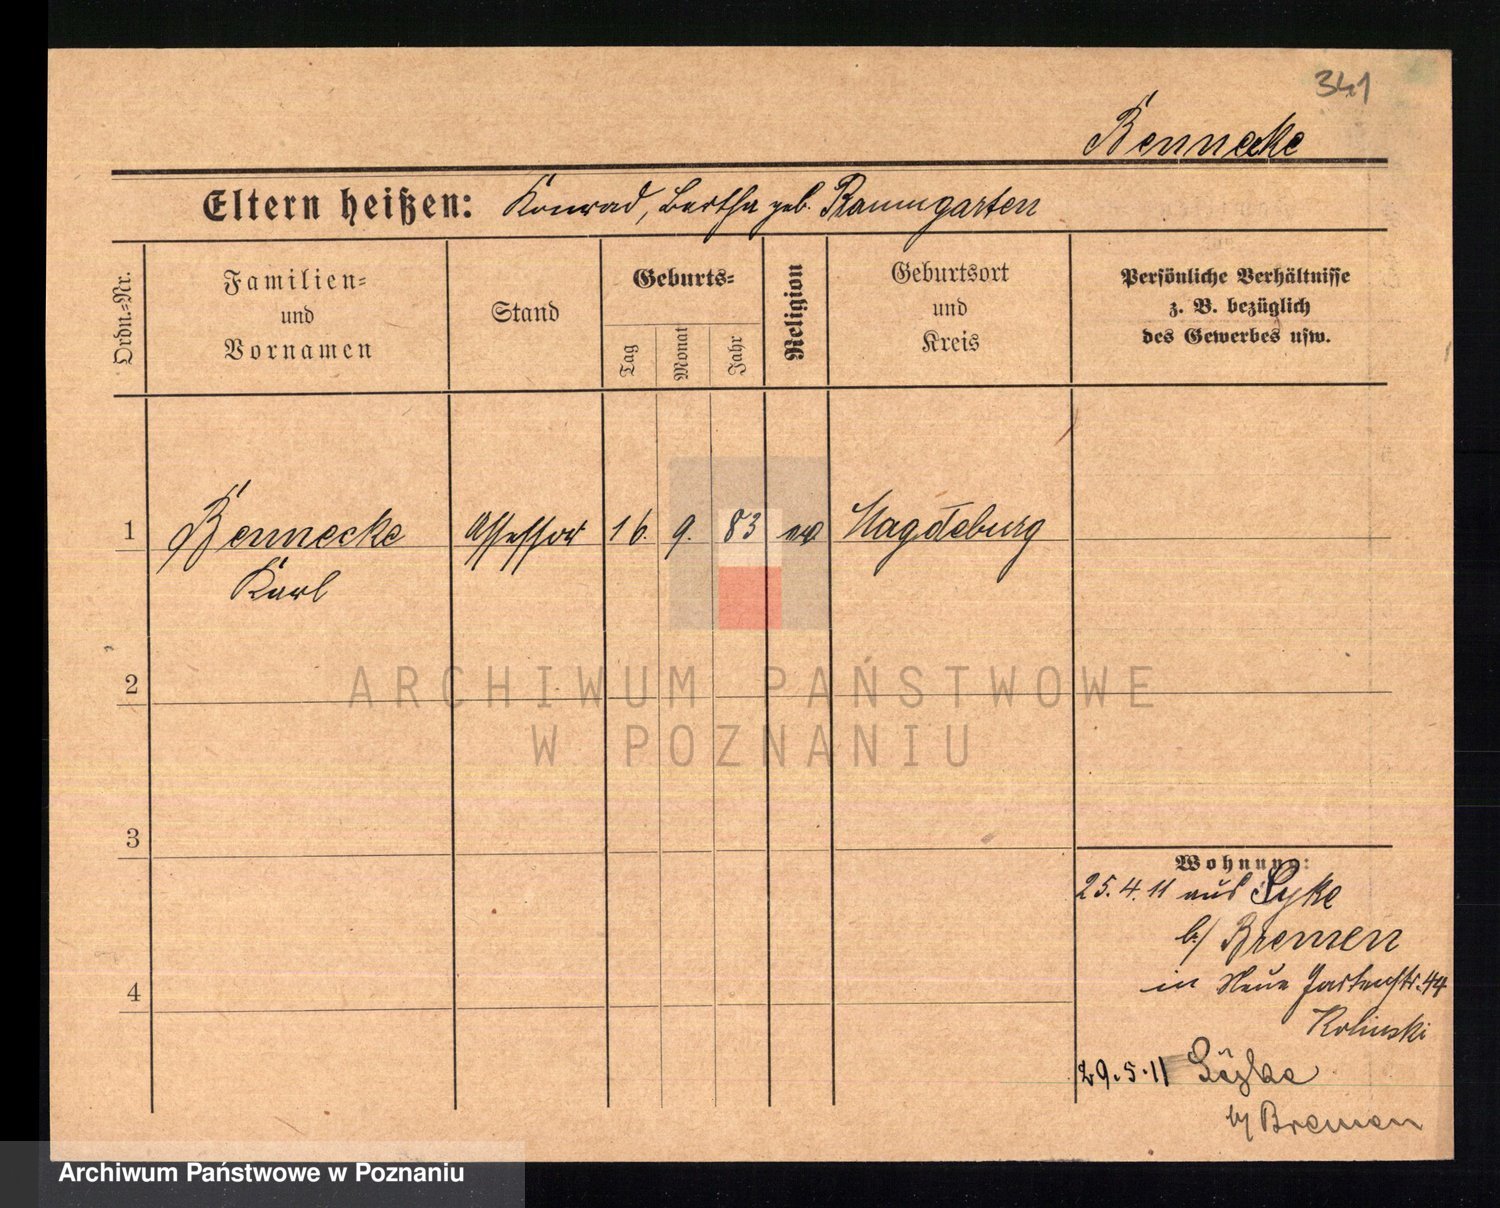 341
Bennecke
Eltern heißen: Konrad, Bertha geb. Baumgarten
Ordn.-Nr.
Familien-
und
Vornamen
Stand
Geburts-
Tag
Monat
Jahr
Religion
Geburtsort
und
Kreis
Persönliche Verhältnisse
z. B. bezüglich
des Gewerbes usw.
1 Bennecke Assessor 16. 9. 83 ev Magdeburg
Karl
2
3
4
Wohnung:
25.4.11 aus Syke
b/ Bremen
in Neue Gartenstr. 44
Kolinski
29.5.11
b/ Bremen
ARCHIWUM PAŃSTWOWE
W POZNANIU
Archiwum Państwowe w Poznaniu